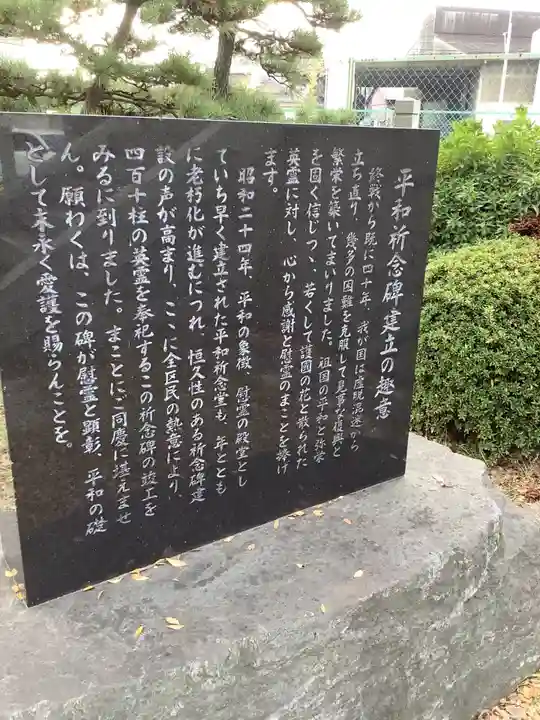 平和祈念碑建立の趣意
終戦から既に四十年、我が国は虚脱混迷から
立ち直り、幾多の困難を克服して見事な復興と
繁栄を築いてまいりました。祖国の平和と弥栄
を固く信じつゝ、若くして護国の花と散られた
英霊に対し、心から感謝と慰霊のまことを捧げ
ます。
昭和二十四年、平和の象徴、慰霊の殿堂とし
ていち早く建立された平和祈念堂も、年ととも
に老朽化が進むにつれ、恒久性のある祈念碑建
設の声が高まり、ここに全区民の熱意により、
四百十柱の英霊を奉祀するこの祈念碑の竣工を
みるに到りました。まことにご同慶に堪えませ
ん。願わくは、この碑が慰霊と顕彰、平和の礎
として末永く愛護を賜らんことを。